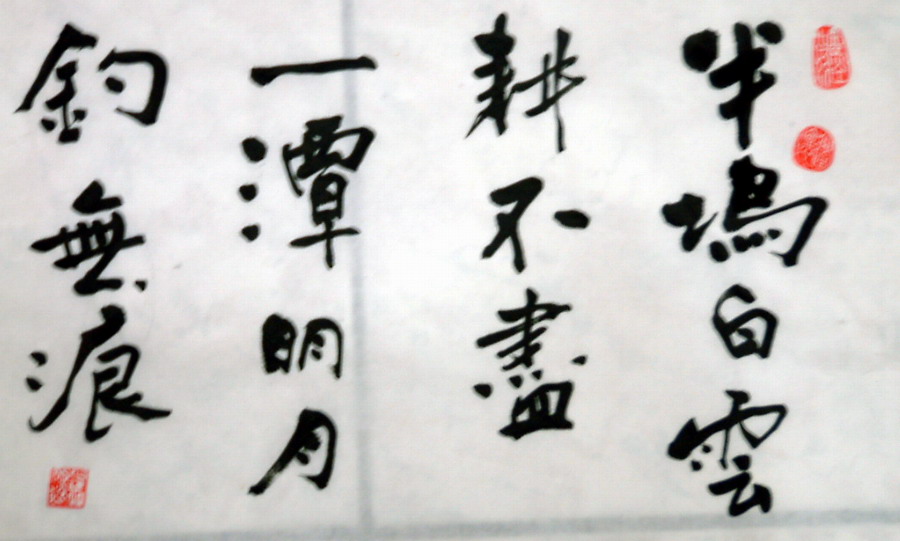 半塢白雲
耕不盡
一潭明月
釣無痕